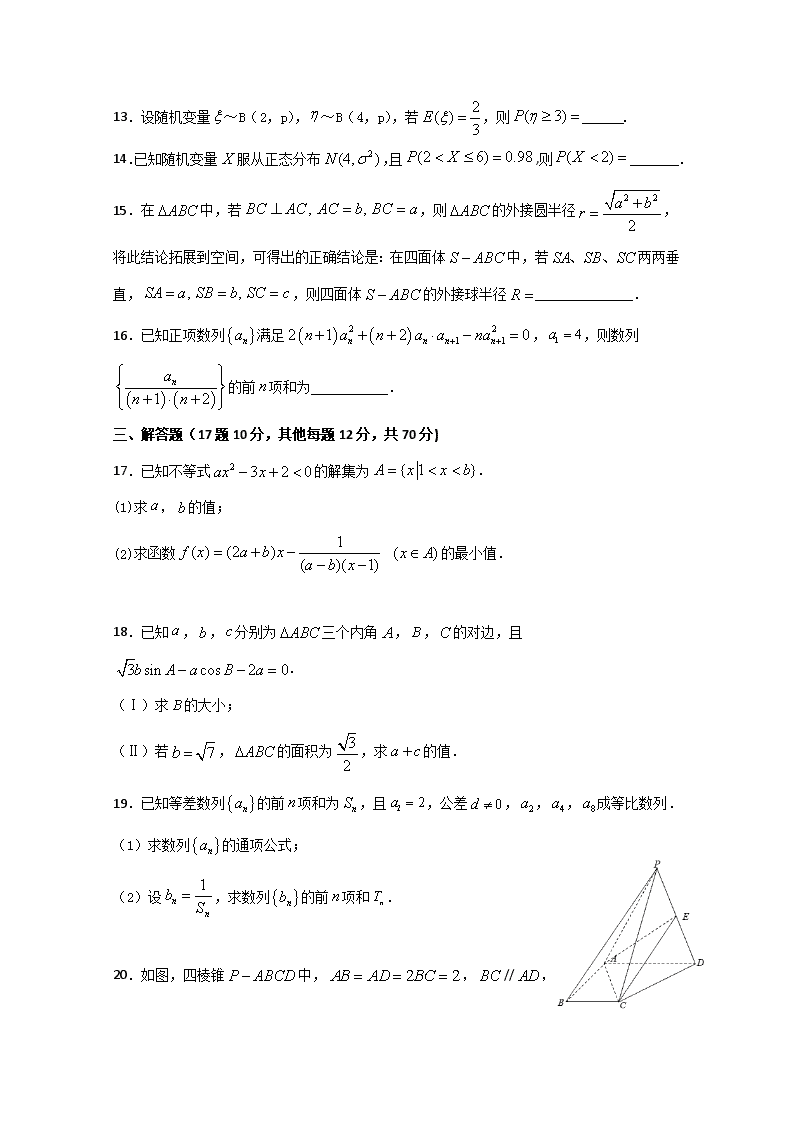 13. 设随机变量 ξ～B(2, p), η～B(4, p), 若 E(ξ) = 2/3, 则 P(η ≥ 3) = ______.
14.已知随机变量 X 服从正态分布 N(4, σ²),且 P(2 < X ≤ 6) = 0.98,则 P(X < 2) = _______.
15. 在 ΔABC 中, 若 BC ⊥ AC, AC = b, BC = a, 则 ΔABC 的外接圆半径 r = √(a² + b²)/2,
将此结论拓展到空间, 可得出的正确结论是: 在四面体 S − ABC 中, 若 SA、SB、SC 两两垂
直, SA = a, SB = b, SC = c, 则四面体 S − ABC 的外接球半径 R = ______________.
16. 已知正项数列{aₙ}满足 2(n+1)aₙ² + (n+2)aₙ · aₙ₊₁ − naₙ₊₁² = 0, a₁ = 4, 则数列
{aₙ/((n+1)·(n+2))} 的前 n 项和为___________.
三、解答题（17 题 10 分，其他每题 12 分，共 70 分）
17. 已知不等式 ax² − 3x + 2 < 0 的解集为 A = {x|1 < x < b}.
(1)求 a, b 的值;
(2)求函数 f(x) = (2a + b)x − 1/((a − b)(x − 1)) (x ∈ A) 的最小值.
18. 已知 a, b, c 分别为 ΔABC 三个内角 A, B, C 的对边, 且
√3b sin A − a cos B − 2a = 0.
(Ⅰ)求 B 的大小;
(Ⅱ)若 b = √7, ΔABC 的面积为 √3/2, 求 a + c 的值.
19. 已知等差数列{aₙ}的前 n 项和为 Sₙ, 且 a₁ = 2, 公差 d ≠ 0, a₂, a₄, a₈ 成等比数列.
(1)求数列{aₙ}的通项公式;
(2)设 bₙ = 1/Sₙ, 求数列{bₙ}的前 n 项和 Tₙ.
P
E
A
D
B
C
20. 如图, 四棱锥 P − ABCD 中, AB = AD = 2BC = 2, BC // AD,